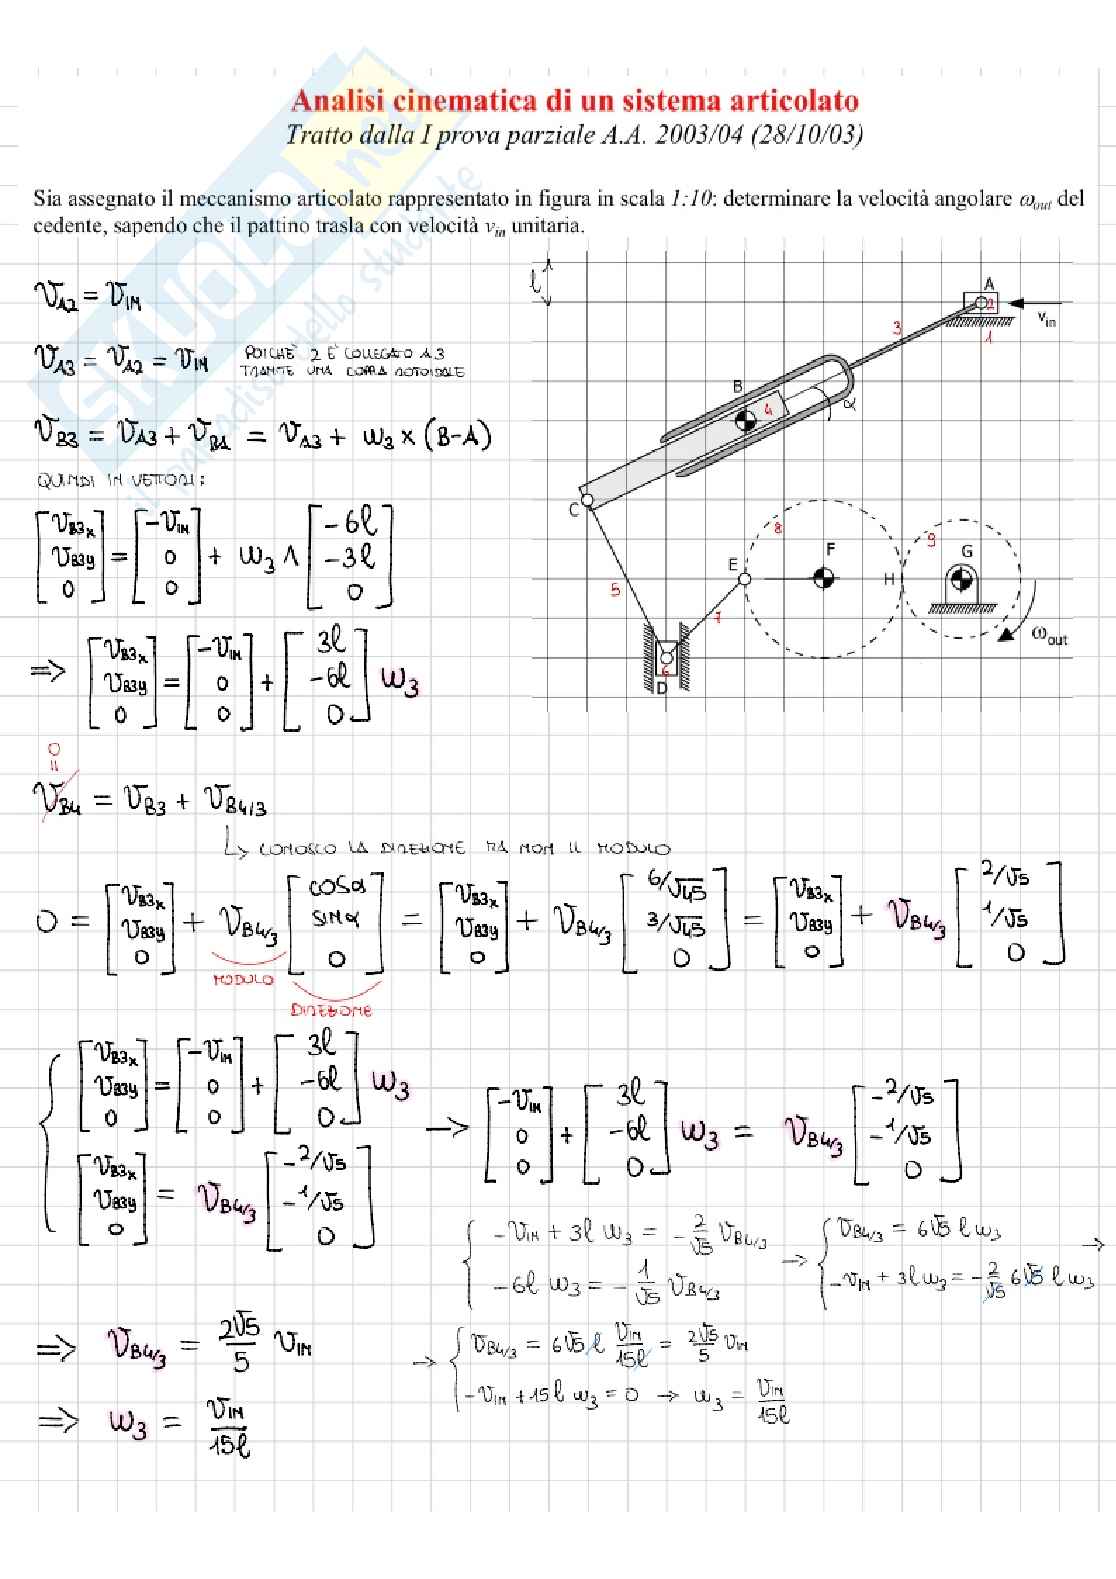 Analisi cinematica di un sistema articolato
Tratto dalla I prova parziale A.A. 2003/04 (28/10/03)
Sia assegnato il meccanismo articolato rappresentato in figura in scala 1:10: determinare la velocità angolare ω_out del
cedente, sapendo che il pattino trasla con velocità v_in unitaria.
V_A2 = V_IN
V_A3 = V_A2 = V_IN POICHÉ 2 È COLLEGATO A 3
TRAMITE UNA COPPIA ROTOIDALE
V_B3 = V_A3 + V_BA = V_A3 + ω_3 × (B-A)
QUINDI IN VETTORI:
[V_B3x V_B3y 0] = [-V_IN 0 0] + ω_3 ∧ [-6l -3l 0]
=> [V_B3x V_B3y 0] = [-V_IN 0 0] + [3l -6l 0] ω_3
l
A
2
v_in
1
3
B
4
α
C
5
8
F
9
G
E
H
7
6
D
ω_out
0
=
V_B4 = V_B3 + V_B4/3
↳ CONOSCO LA DIREZIONE MA NON IL MODULO
0 = [V_B3x V_B3y 0] + V_B4/3 [cosα sinα 0] = [V_B3x V_B3y 0] + V_B4/3 [6/√45 3/√45 0] = [V_B3x V_B3y 0] + V_B4/3 [2/√5 1/√5 0]
MODULO
DIREZIONE
{ [V_B3x V_B3y 0] = [-V_IN 0 0] + [3l -6l 0] ω_3
[V_B3x V_B3y 0] = V_B4/3 [-2/√5 -1/√5 0]
→ [-V_IN 0 0] + [3l -6l 0] ω_3 = V_B4/3 [-2/√5 -1/√5 0]
{ -V_IN + 3l ω_3 = -2/√5 V_B4/3
-6l ω_3 = -1/√5 V_B4/3
→ { V_B4/3 = 6√5 l ω_3
-V_IN + 3l ω_3 = -2/√5 6√5 l ω_3 →
→ { V_B4/3 = 6√5 l V_IN/15l = 2√5/5 V_IN
-V_IN + 15l ω_3 = 0 → ω_3 = V_IN/15l
=> V_B4/3 = 2√5/5 V_IN
=> ω_3 = V_IN/15l
SKUOLA.net
il paradiso dello studente